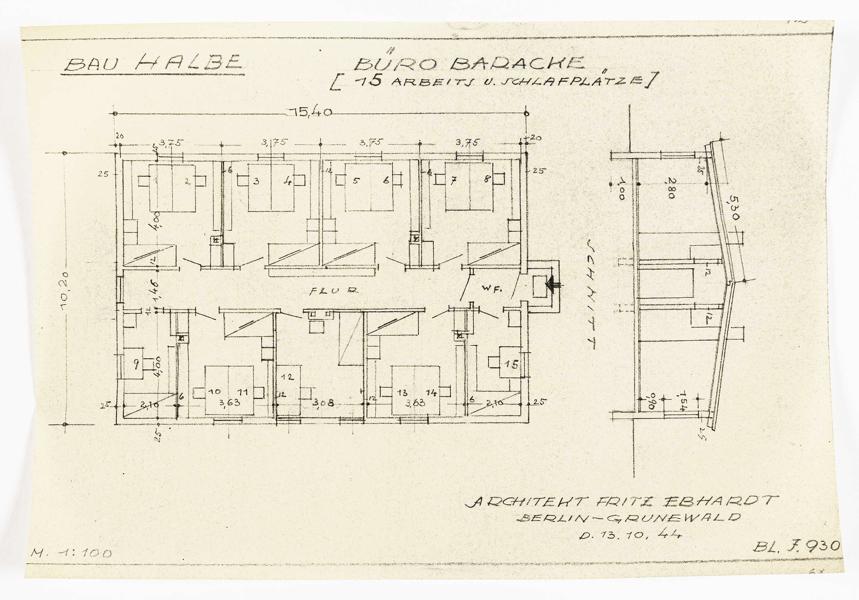 BAU HALBE
BÜRO BARACKE
[ 15 ARBEITS U. SCHLAFPLÄTZE ]
15,40
20
3,75
3,75
3,75
3,75
20
25
6
12
6
25
2
3
4
5
6
7
8
4,00
12
1,46
12
10,20
FLUR
WF.
9
4,00
10
11
12
13
14
15
25
2,10
6
3,63
12
3,08
12
3,63
6
2,10
25
25
SCHNITT
1,00
2,80
5,30
12
12
0,90
1,54
25
ARCHITEKT FRITZ EBHARDT
BERLIN-GRUNEWALD
D. 13. 10. 44
M. 1:100
BL. F. 930